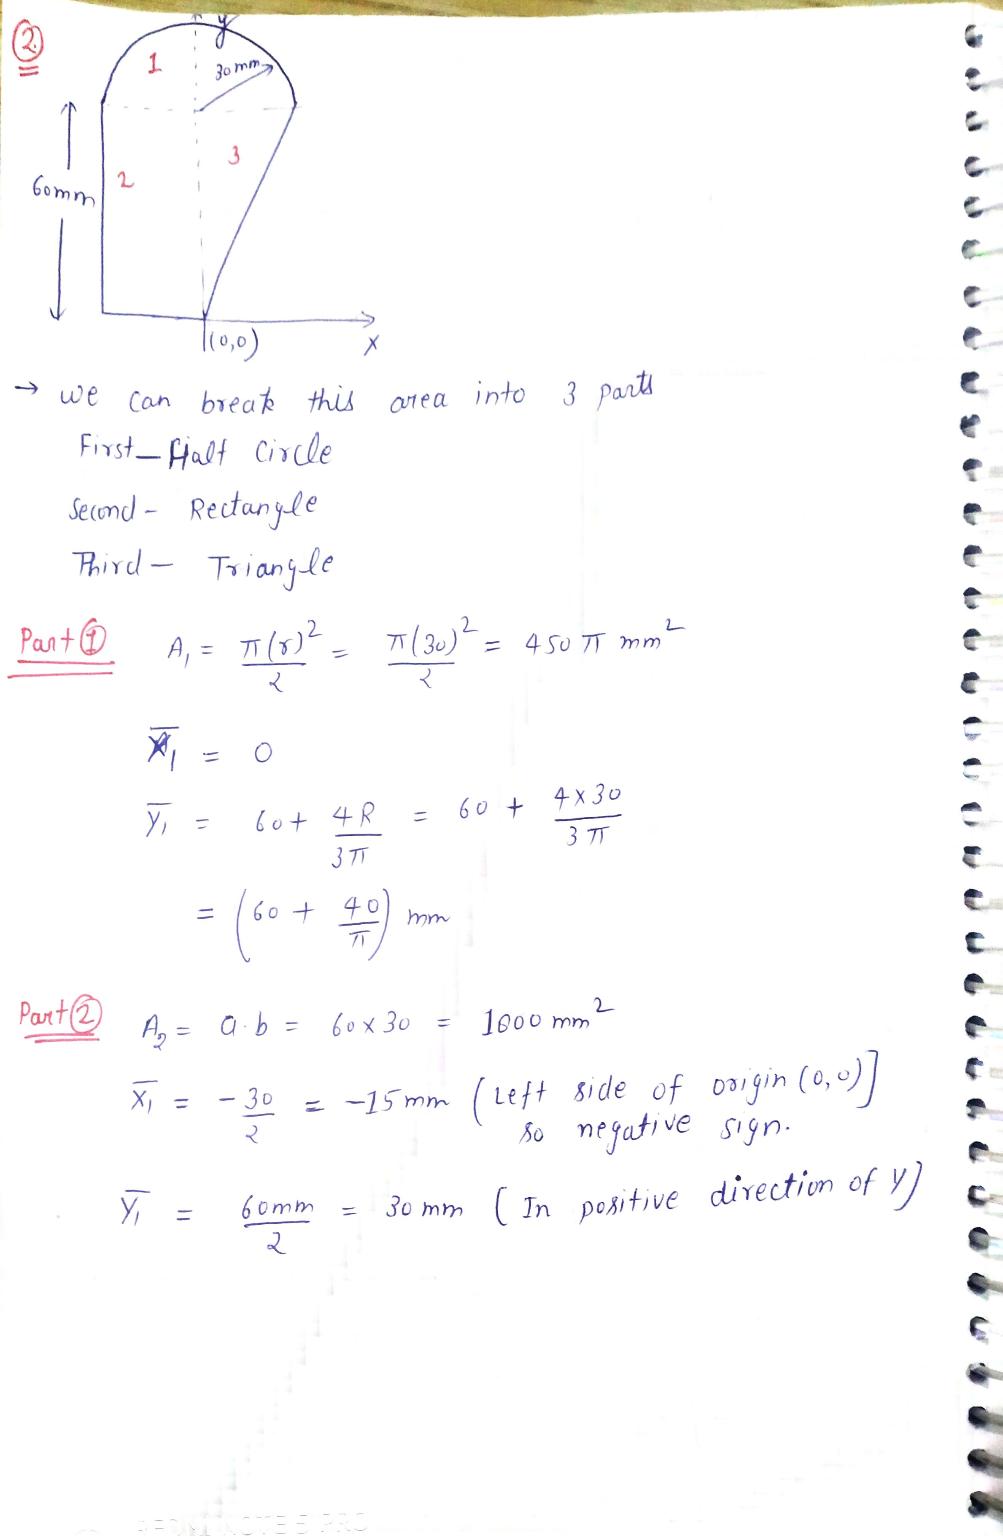 ②
y
1
30mm
3
60mm
2
(0,0)
x
→ we can break this area into 3 parts
First – Half Circle
Second - Rectangle
Third – Triangle
Part ① A₁ = π(r)²/2 = π(30)²/2 = 450 π mm²
X̅₁ = 0
Y̅₁ = 60 + 4R/3π = 60 + 4×30/3π
= (60 + 40/π) mm
Part ② A₂ = a.b = 60×30 = 1800 mm²
X̅₁ = -30/2 = -15 mm (Left side of origin (0,0)]
so negative sign.
Y̅₁ = 60mm/2 = 30 mm (In positive direction of Y)